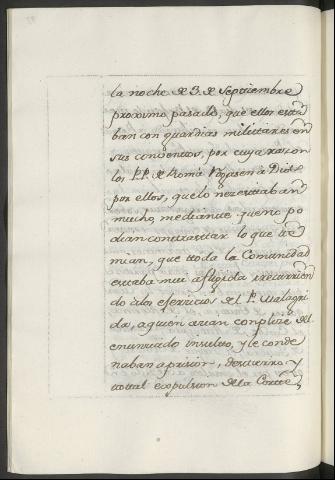 la noche de 3. de Septiembre
proximo pasado, que ellos esta
ban con guardias militares en
sus conventos, por cuya razon
los P.P. de Roma rogasen à Dios
por ellos, que lo nezesitaban
mucho, mediante, que no po
dian conttrastar lo que tte
mian, que ttoda la Comunidad
estaba mui afligida, recurrien
do alos eserzicios de el P. Malagri
da, aquien avian complize del
enunciado insulto, y le conde
naban aprision, destierro, y
total expulsion dela Corte,